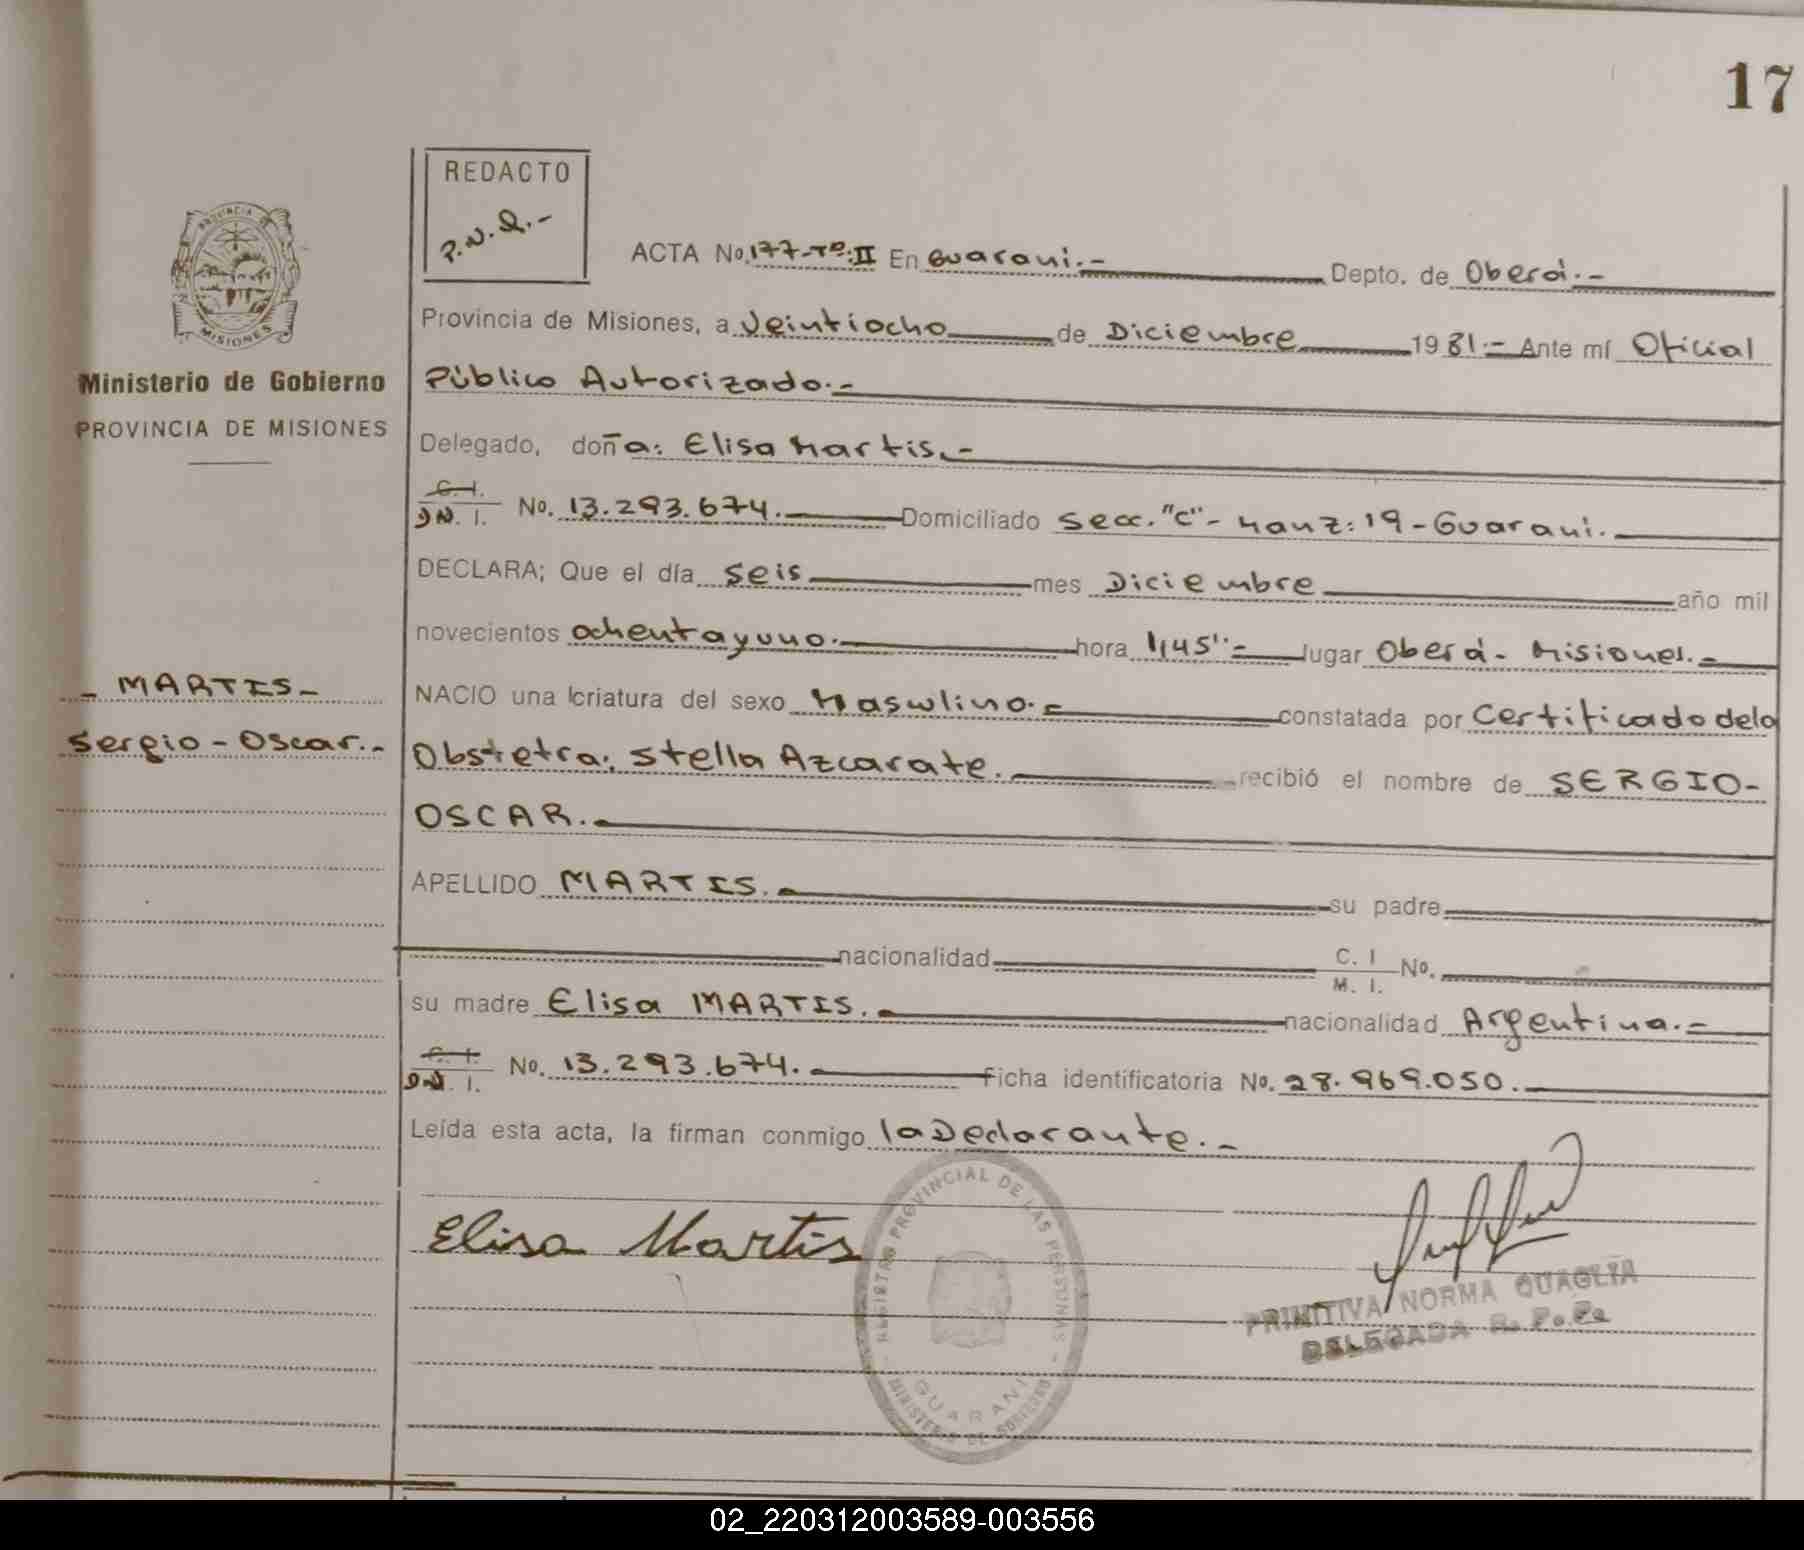 17
REDACTO
P.N.Q.-
PROVINCIA DE
MISIONES
Ministerio de Gobierno
PROVINCIA DE MISIONES
ACTA No. 177-Tº:II En Guaraní.- Depto. de Oberá.-
Provincia de Misiones, a Veintiocho de Diciembre 1981.- Ante mí Oficial
Público Autorizado.-
Delegado, doña: Elisa Martis.-
C. I.
DN. I. No. 13.293.674. Domiciliado Secc. "C"- Manz: 19 - Guaraní.
DECLARA; Que el día seis mes Diciembre año mil
novecientos ochentayuno. hora 1,45".- lugar Oberá - Misiones.-
- MARTIS -
Sergio - Oscar.-
NACIO una criatura del sexo Masculino.- constatada por Certificado dela
Obstetra: Stella Azcarate. recibió el nombre de SERGIO-
OSCAR.
APELLIDO MARTIS. su padre
nacionalidad C. I
M. I. No.
su madre Elisa MARTIS. nacionalidad Argentina.-
C. I.
DN. I. No. 13.293.674. ficha identificatoria No. 28.969.050.
Leída esta acta, la firman conmigo la Declarante.-
Elisa Martis
REGISTRO PROVINCIAL DE LAS PERSONAS
GUARANI
MINISTERIO DE GOBIERNO
PRIMITIVA NORMA QUAGLIA
DELEGADA R. P. P.
02_220312003589-003556